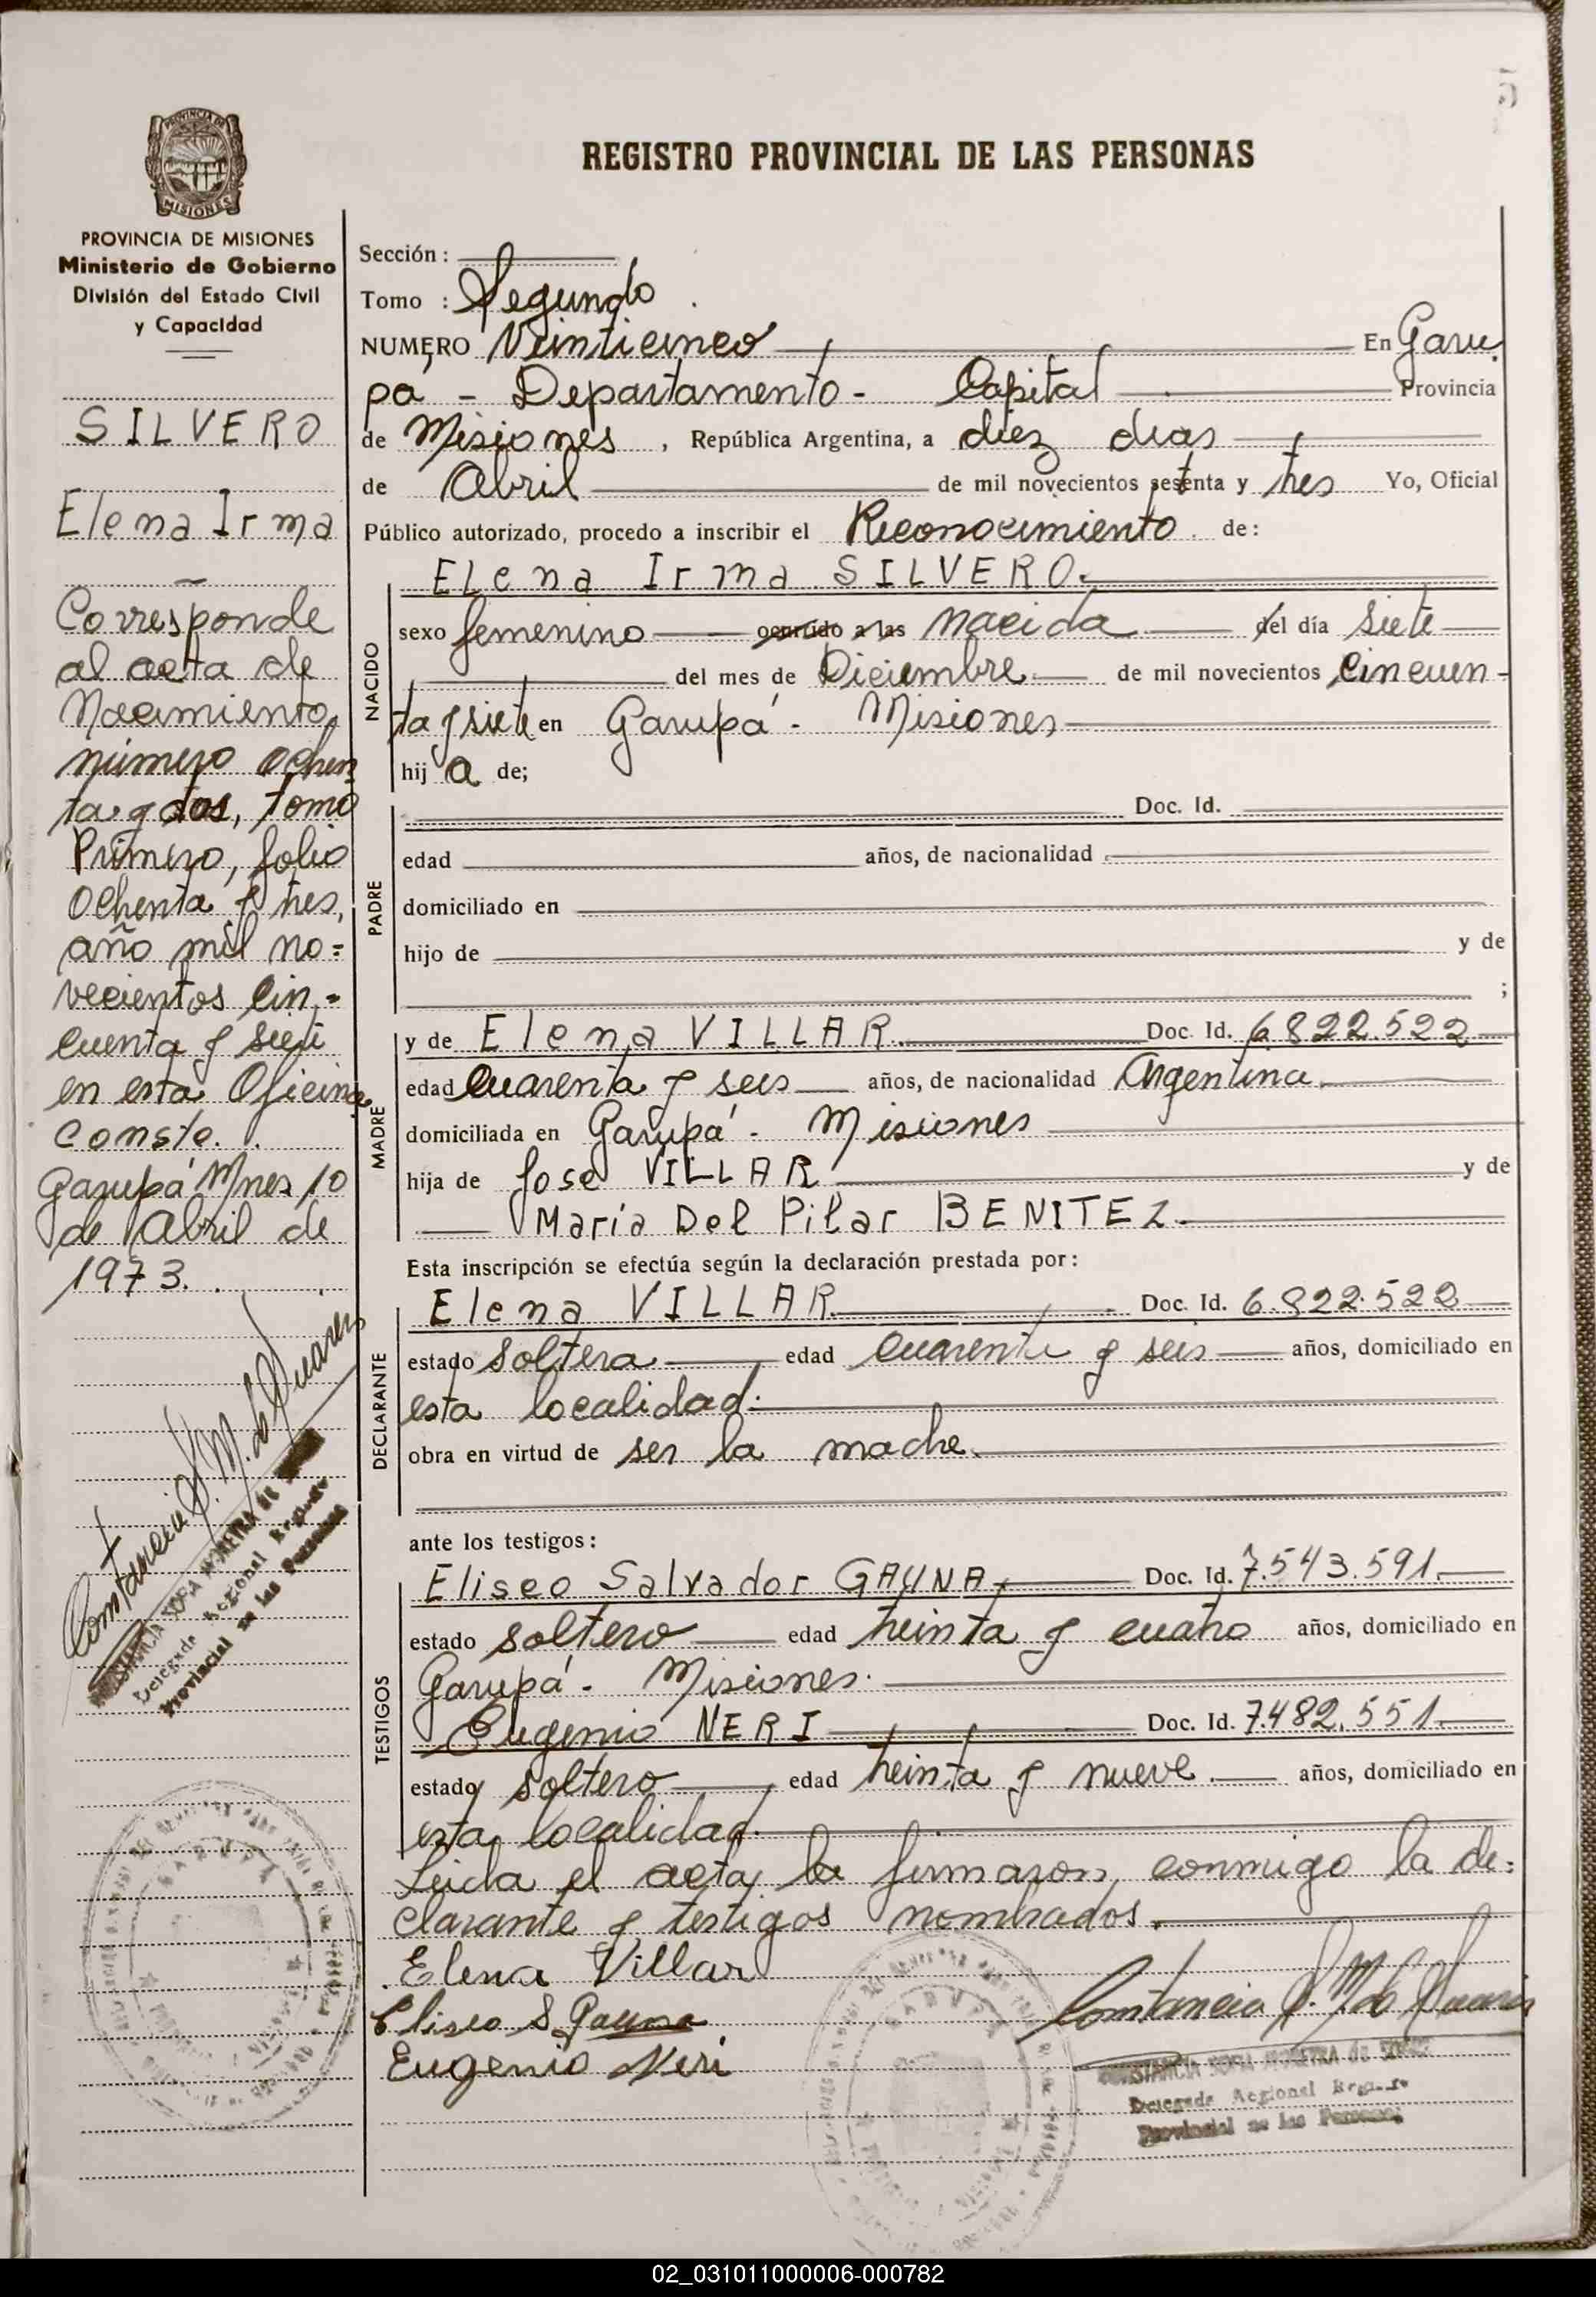 REGISTRO PROVINCIAL DE LAS PERSONAS
PROVINCIA DE MISIONES
Ministerio de Gobierno
División del Estado Civil
y Capacidad
SILVERO
Elena Irma
Corresponde
al acta de
Nacimiento,
número ochen
ta y dos, tomo
Primero, folio
Ochenta y tres,
año mil no=
vecientos cin-
cuenta y siete
en esta Oficina
Conste.
Garupá Mnes 10
de Abril de
1973.
Constancia S. M. de Suarez
Delegado Regional Registro
Provincial de las Personas
Sección:
Tomo : Segundo
NUMERO Veinticinco En Garu
pá - Departamento - Capital Provincia
de Misiones, República Argentina, a diez dias
de Abril de mil novecientos setenta y tres Yo, Oficial
Público autorizado, procedo a inscribir el Reconocimiento de:
Elena Irma SILVERO.
NACIDO
sexo femenino ocurrido a las nacida del día siete
del mes de Diciembre de mil novecientos cincuen-
ta y siete en Garupá - Misiones
hij a de;
PADRE
Doc. Id.
edad años, de nacionalidad
domiciliado en
hijo de y de
;
MADRE
y de Elena VILLAR. Doc. Id. 6.822.522
edad cuarenta y seis años, de nacionalidad Argentina.
domiciliada en Garupá - Misiones
hija de José VILLAR y de
María Del Pilar BENITEZ.
Esta inscripción se efectúa según la declaración prestada por:
DECLARANTE
Elena VILLAR. Doc. Id. 6.822.522
estado soltera edad cuarenta y seis años, domiciliado en
esta localidad.
obra en virtud de ser la madre.
ante los testigos:
TESTIGOS
Eliseo Salvador GAUNA. Doc. Id. 7.543.591.
estado soltero edad treinta y cuatro años, domiciliado en
Garupá - Misiones.
Eugenio NERI Doc. Id. 7.482.551.
estado soltero edad treinta y nueve años, domiciliado en
esta localidad.
Leída el acta, la firmaron conmigo la de=
clarante y testigos nombrados.
Elena Villar
Eliseo S Gauna
Eugenio Neri
Constancia S. M. de Suarez
CONSTANCIA SOFIA MOREYRA de
Delegado Regional Registro
Provincial de las Personas
02_031011000006-000782